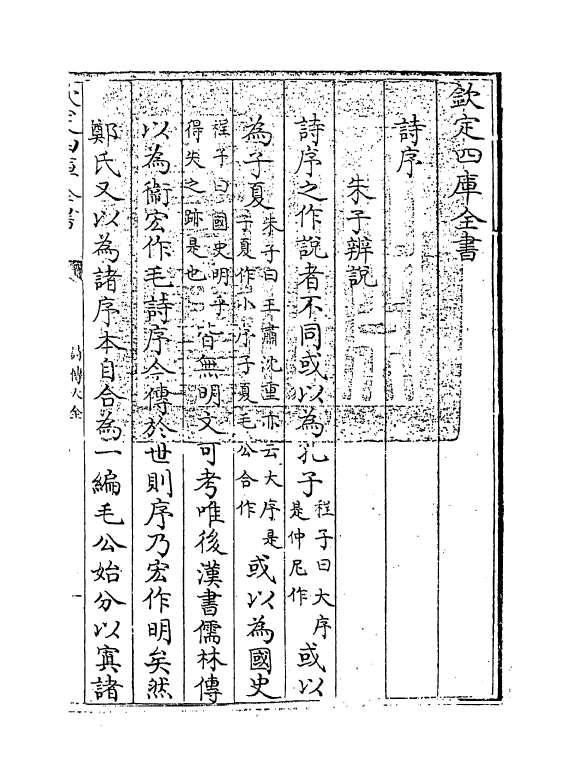 欽定四庫全書
詩序
朱子辨說
詩序之作說者不同或以為孔子程子曰大序是仲尼作或以
為子夏朱子曰王肅沈重亦云大序是子夏作小序子夏毛公合作或以為國史
程子曰國史明乎得失之跡是也皆無明文可考唯後漢書儒林傳
以為衞宏作毛詩序今傳於世則序乃宏作明矣然
鄭氏又以為諸序本自合為一編毛公始分以寘諸
詩傳大全
一